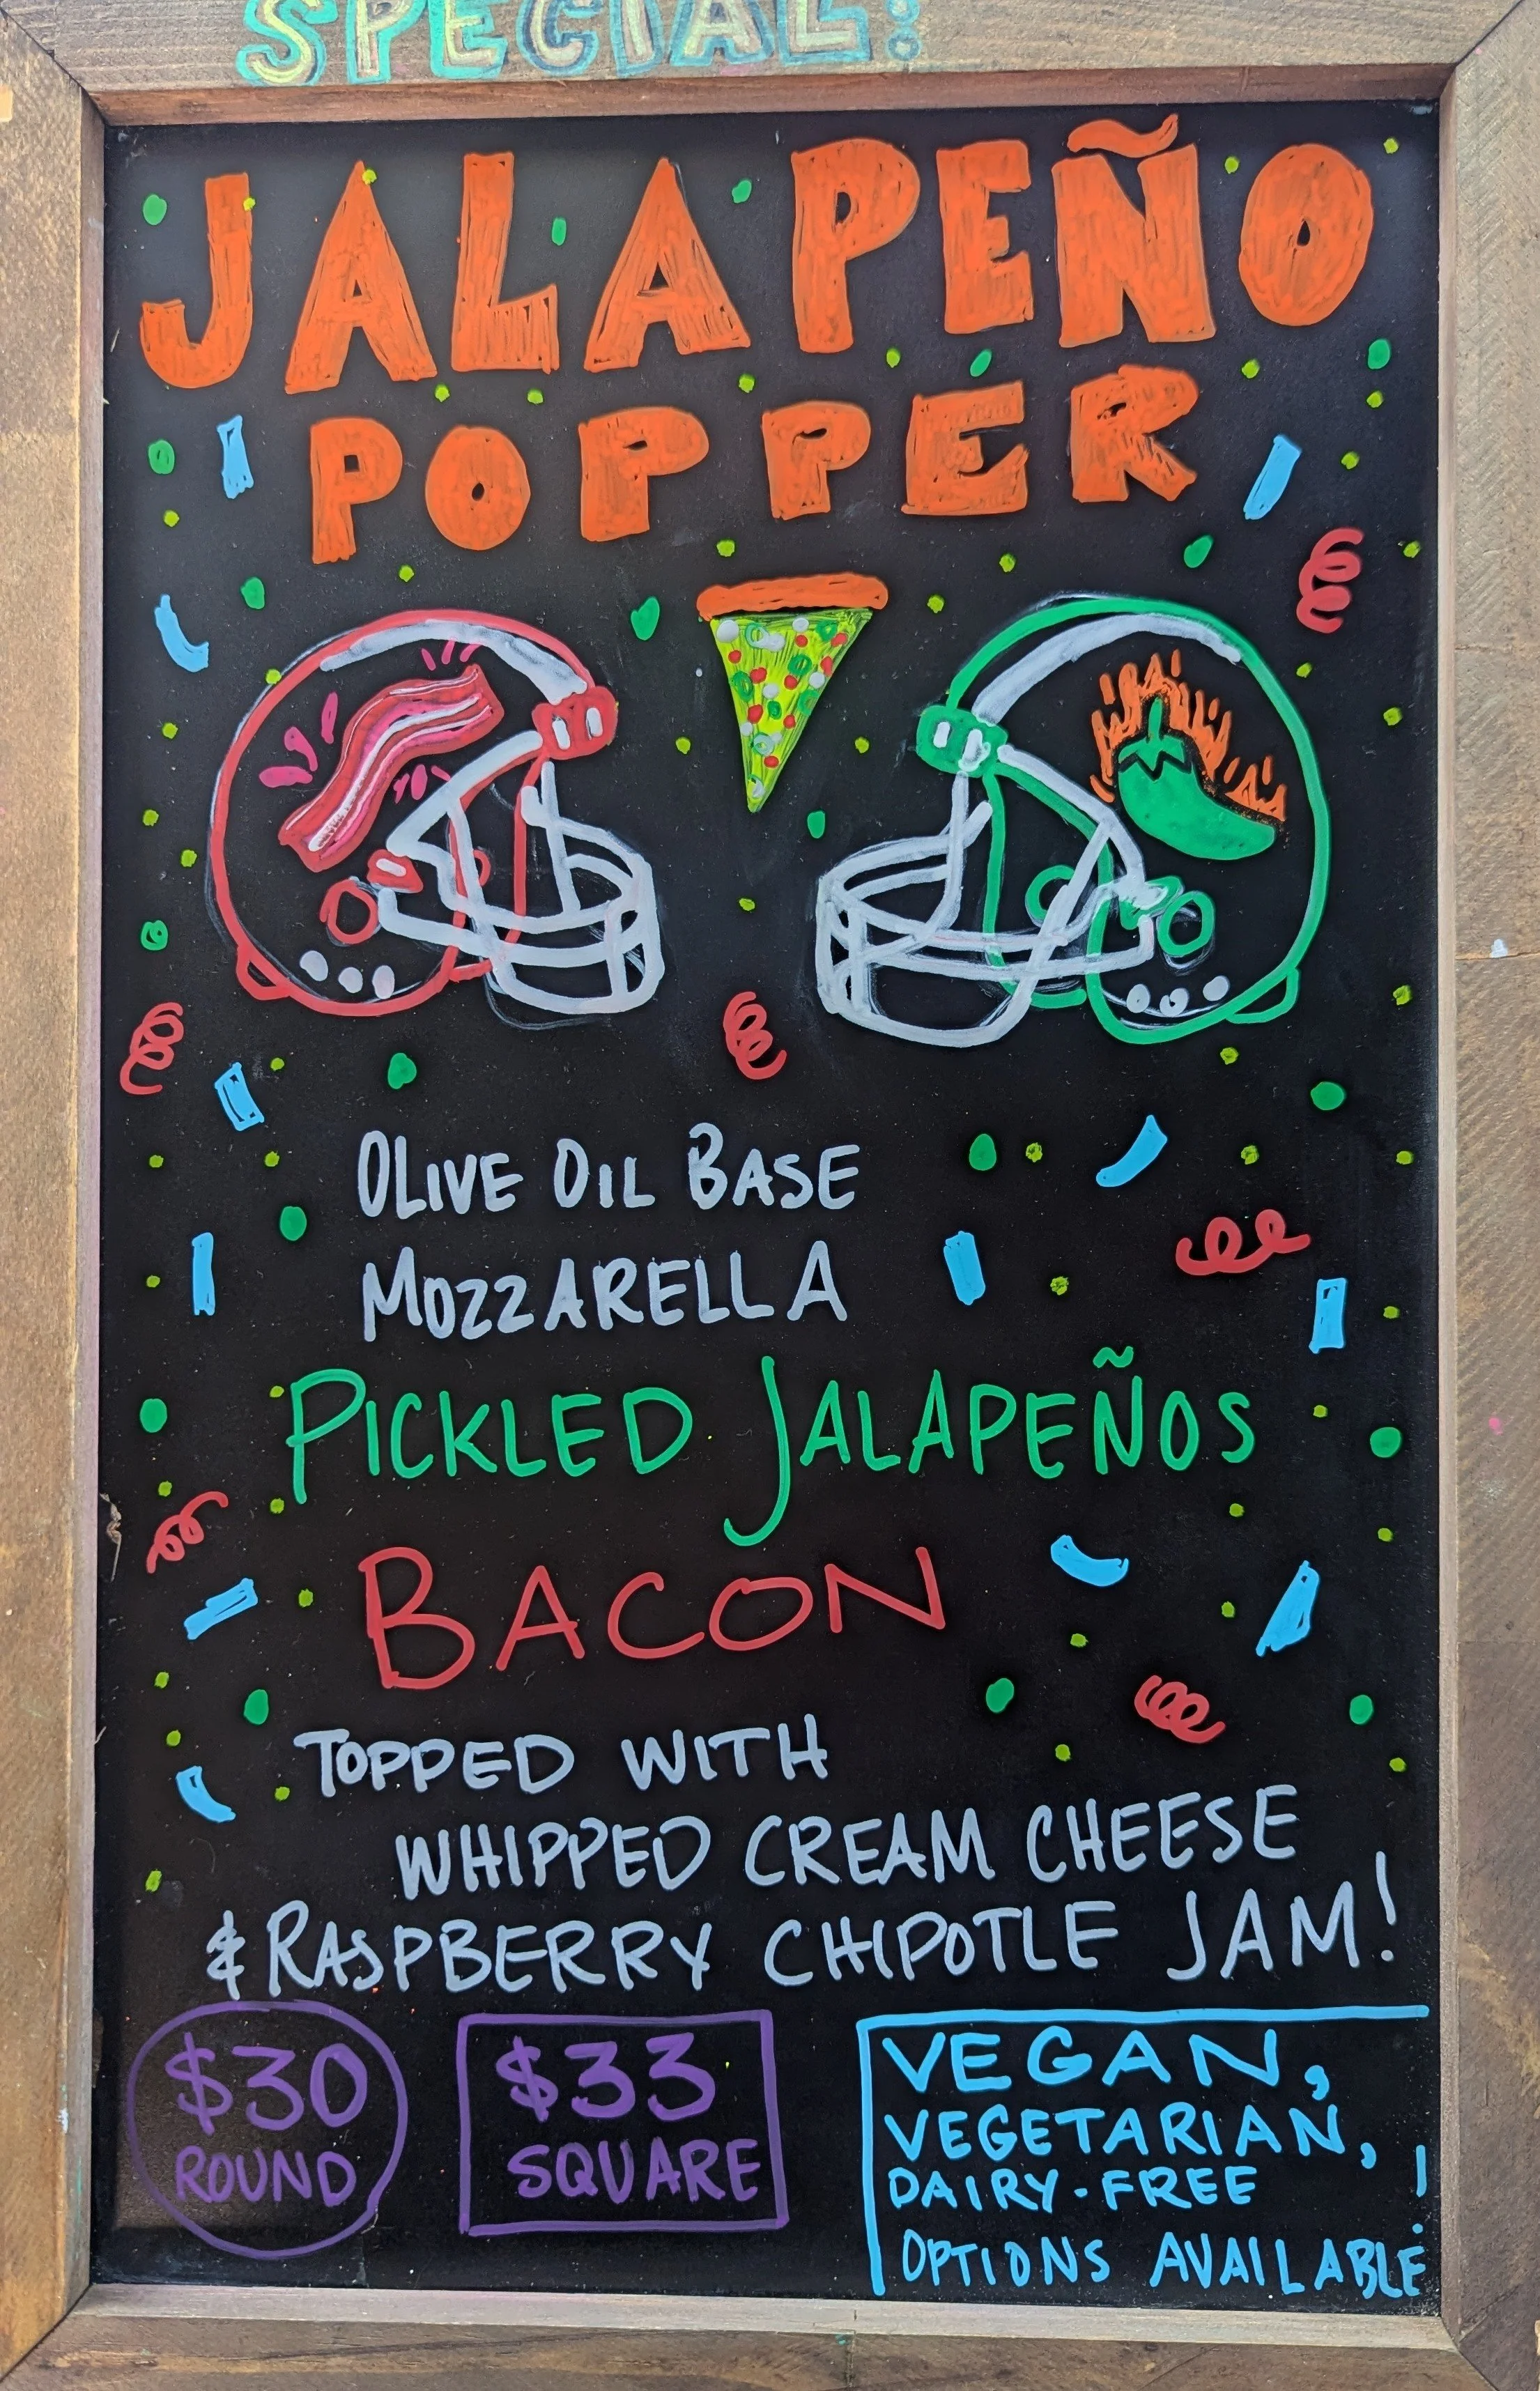 SPECIAL:
JALAPEÑO
POPPER
OLIVE OIL BASE
MOZZARELLA
PICKLED JALAPEÑOS
BACON
TOPPED WITH
WHIPPED CREAM CHEESE
& RASPBERRY CHIPOTLE JAM!
$30
ROUND
$33
SQUARE
VEGAN,
VEGETARIAN,
DAIRY-FREE
OPTIONS AVAILABLE!